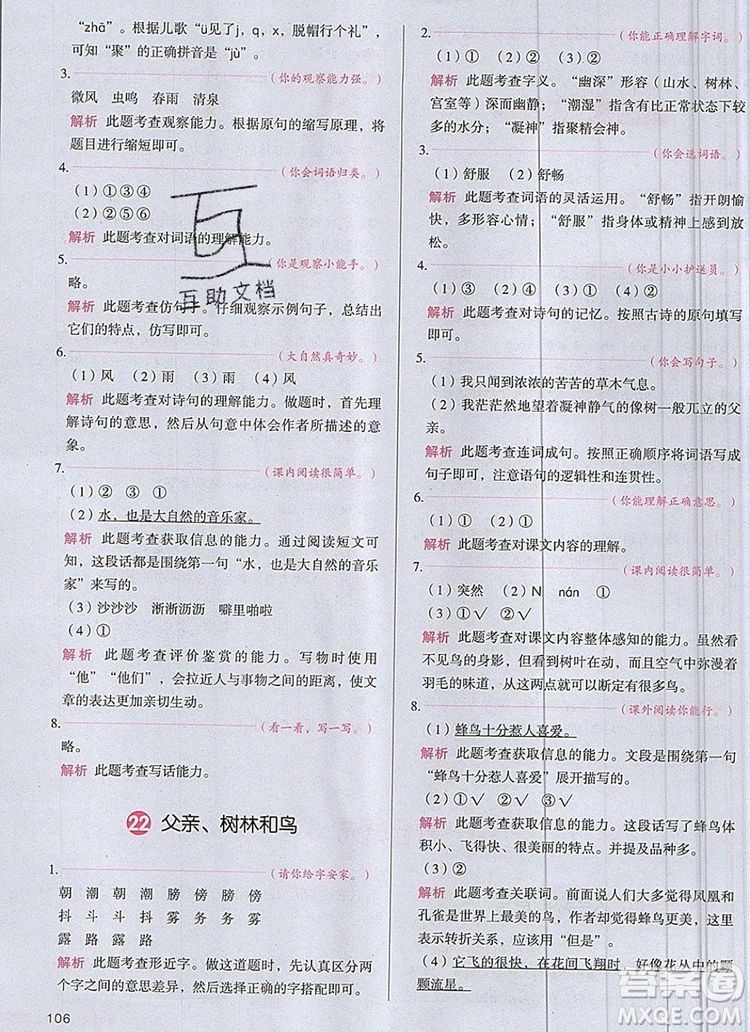 “zhā”。根据儿歌“ü见了j，q，x，脱帽行个礼”，
可知“聚”的正确拼音是“jù”。
3.
（你的观察能力强。）
微风 虫鸣 春雨 清泉
解析 此题考查观察能力。根据原句的缩写原理，将
题目进行缩短即可。
4.
（你会词语归类。）
（1）①③④
（2）②⑤⑥
解析 此题考查对词语的理解能力。
5.
（你是观察小能手。）
略。
解析 此题考查仿句。仔细观察示例句子，总结出
它们的特点，仿写即可。
6.
（大自然真奇妙。）
（1）风 （2）雨 （3）雨 （4）风
解析 此题考查对诗句的理解能力。做题时，首先理
解诗句的意思，然后从句意中体会作者所描述的意
象。
7.
（课内阅读很简单。）
（1）③ ② ①
（2）水，也是大自然的音乐家。
解析 此题考查获取信息的能力。通过阅读短文可
知，这段话都是围绕第一句“水，也是大自然的音乐
家”来写的。
（3）沙沙沙 淅淅沥沥 噼里啪啦
（4）①
解析 此题考查评价鉴赏的能力。写物时使用
“他”“他们”，会拉近人与事物之间的距离，使文
章的表达更加亲切生动。
8.
（看一看，写一写。）
略。
解析 此题考查写话能力。
22 父亲、树林和鸟
1.
（请你给字安家。）
朝 潮 朝 潮 膀 傍 膀 傍
抖 斗 斗 抖 雾 务 务 雾
露 路 路 露
解析 此题考查形近字。做这道题时，首先区分两
个字的意思，然后选择正确的字搭配即可。
106
2.
（你能正确理解字词。）
（1）① （2）① （3）②
解析 此题考查字义。“幽深”形容（山水、树林、
宫室等）深而幽静。“潮湿”是含有比正常状态下较
多的水分；“凝神”指聚精会神。
3.
（你会选词语。）
（1）舒服 （2）舒畅
解析 此题考查词语的灵活运用。“舒畅”指开朗愉
快，多形容心情；“舒服”指身体或精神上感到轻
松。
4.
（你是小小护送员。）
（1）③ （2）④ （3）① （4）②
解析 此题考查对诗句的记忆。按照古诗的原句填写
即可。
5.
（你会写句子。）
（1）我只闻到浓浓的苦苦的草木气息。
（2）我茫茫然地望着凝神静气的像树一般兀立的父
亲。
解析 此题考查连词成句。按照正确顺序将词语写成
句子即可，注意语句的逻辑性和连贯性。
6.
（你能理解正确意思。）
（1）① （2）①
解析 此题考查对课文内容的理解。
7.
（课内阅读很简单。）
（1）突然 （2）N nán （3）①
（4）①√ ②√ ③√
解析 此题考查对课文内容整体感知的能力。虽然看
不见鸟的身影，但看到树叶在动，而且空气中弥漫着
羽毛的味道，从这几点就可以断定附近有鸟。
8.
（课外阅读你能行。）
（1）蜂鸟十分惹人喜爱。
解析 此题考查获取信息的能力。文段是围绕第一句
“蜂鸟十分惹人喜爱”展开描写的。
（2）①√ ②√ ③√
解析 此题考查获取信息的能力。文段中写出了蜂鸟体
积小、飞得快、很美丽的特点，故这三点都正确。
（3）②
解析 此题考查关联词。前面说大多数人觉得凤凰和
孔雀是世界上最美的鸟，而作者却觉得蜂鸟更美，存
在转折关系，应该用“但是”。
（4）它飞的很快，在花间飞翔时，好像花丛中的一颗
颗流星。
互助文档
答案圈
MXQE.COM